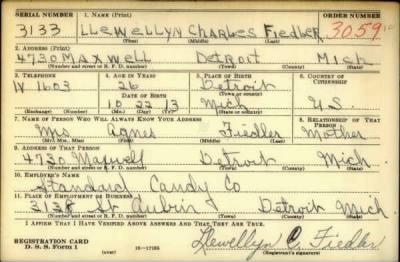 SERIAL NUMBER 1. NAME (Print) ORDER NUMBER
3133 LLEWELLYN CHARLES FIEDLER 3059
(First) (Middle) (Last)
2. ADDRESS (Print)
4730 MAXWELL Detroit Mich
(Number and street or R. F. D. number) (Town) (County) (State)
3. TELEPHONE 4. AGE IN YEARS 5. PLACE OF BIRTH 6. COUNTRY OF CITIZENSHIP
26 Detroit
(Town or county)
DATE OF BIRTH
1603 10 22 13 Mich U.S.
(Exchange) (Number) (Mo.) (Day) (Yr.) (State or country)
7. NAME OF PERSON WHO WILL ALWAYS KNOW YOUR ADDRESS 8. RELATIONSHIP OF THAT PERSON
Mrs Agnes Fiedler Mother
(Mr., Mrs., Miss) (First) (Middle) (Last)
9. ADDRESS OF THAT PERSON
4730 Maxwell Detroit Mich
(Number and street or R. F. D. number) (Town) (County) (State)
10. EMPLOYER'S NAME
Standard Candy Co
11. PLACE OF EMPLOYMENT OR BUSINESS
St Aubin Detroit Mich
(Number and street or R. F. D. number) (Town) (County) (State)
I AFFIRM THAT I HAVE VERIFIED ABOVE ANSWERS AND THAT THEY ARE TRUE.
REGISTRATION CARD
D. S. S. Form 1 16-17105 Llewellyn C. Fiedler
(Registrant's signature)